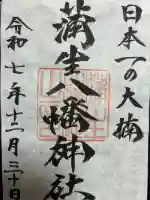 日本一の大楠
蒲生八幡神社
令和七年十二月三十日